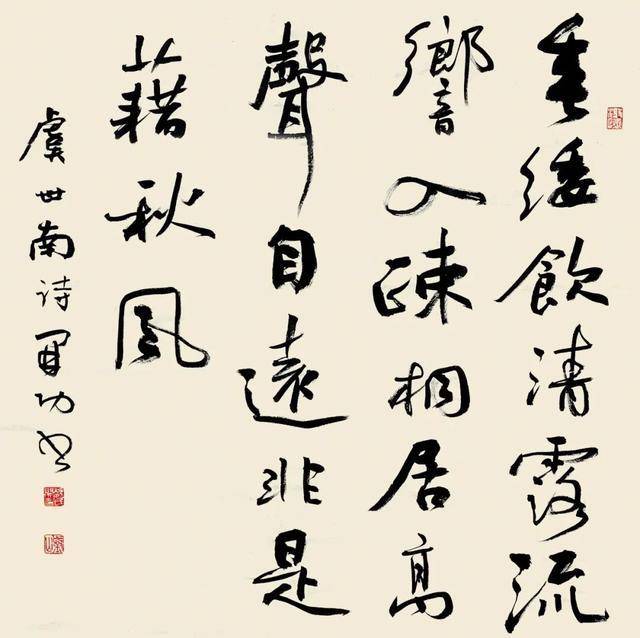 垂緌飲清露流
響入疎桐居高
聲自遠非是
藉秋風
虞世南诗功书